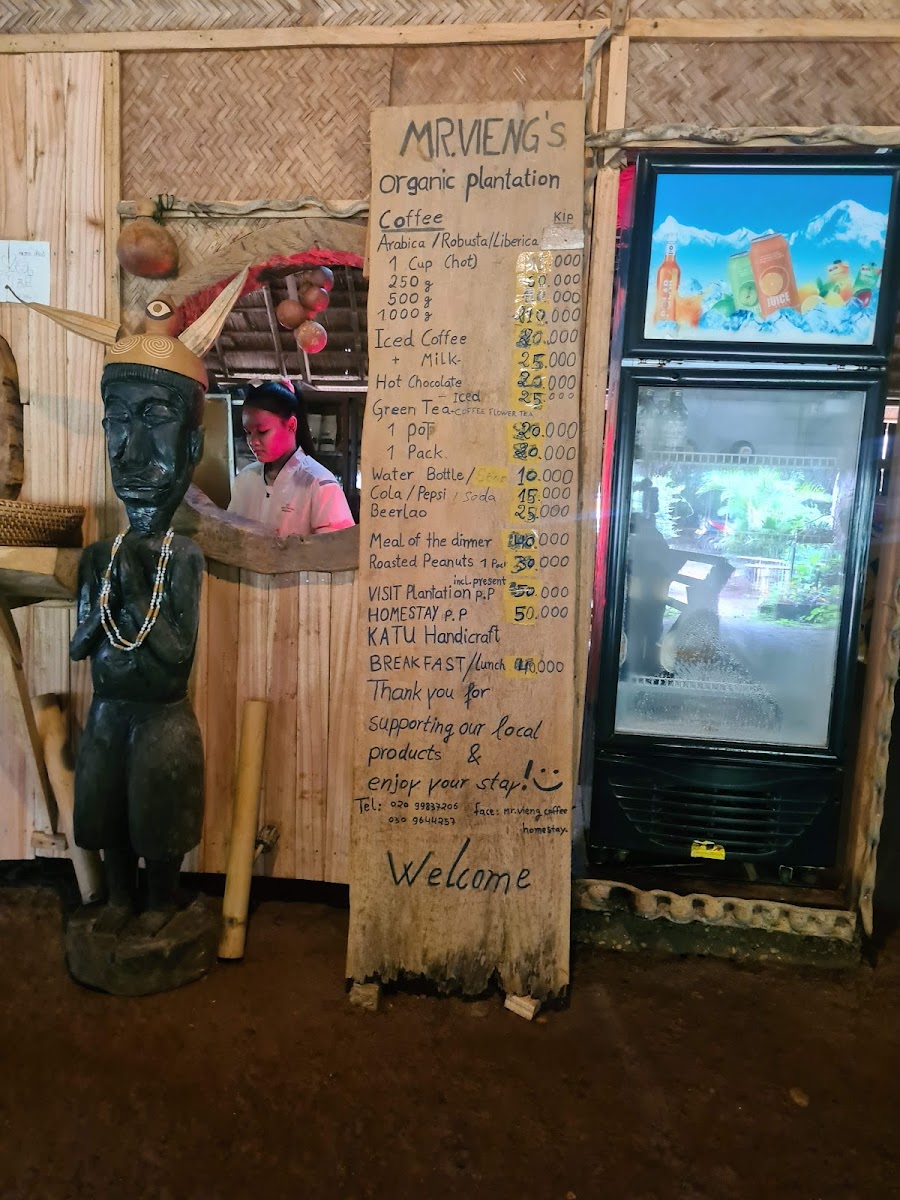 MR.VIENG's
Organic plantation
Coffee KIP
Arabica/Robusta/Liberica
1 Cup (hot) .000
250 g .000
500 g .000
1000 g .000
Iced Coffee 20.000
+ Milk- 25.000
Hot Chocolate 20.000
- Iced 25.000
Green Tea-COFFEE FLOWER TEA
1 pot 20.000
1 Pack. .000
Water Bottle/ 10.000
Cola/Pepsi/Soda 15.000
Beerlao 25.000
Meal of the dinner 40.000
Roasted Peanuts 1 Pack 30.000
incl.present
VISIT Plantation P.P 50.000
HOMESTAY P.P 50.000
KATU Handicraft
BREAKFAST/Lunch 40,000
Thank you for
supporting our local
products &
enjoy your stay!
Tel: 020 99837206 face: Mr.vieng coffee
030 9644257 homestay.
Welcome
JUICE